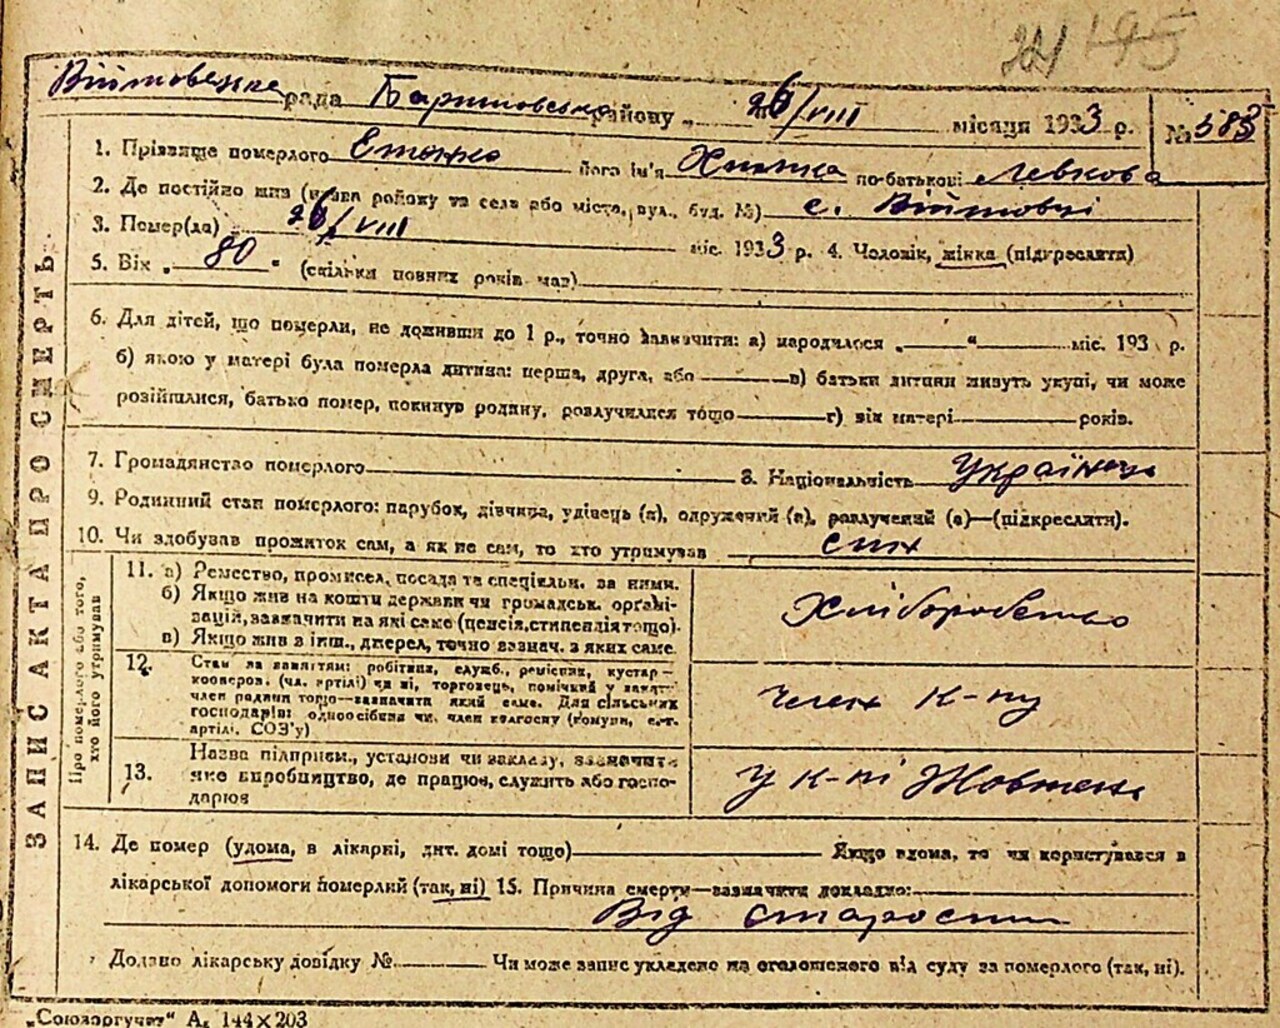 195
Війтовецька рада Баришовського району „ 26/VIII місяця 1933 р. № 583
ЗАПИС АКТА ПРО СМЕРТЬ
1. Прізвище померлого його ім'я по-батькові Левкова
2. Де постійно жив (назва району та села або міста, вул., буд. №) с. Війтовці
3. Помер(ла) 26/VIII міс. 1933 р. 4. Чоловік, жінка (підкреслити)
5. Вік „ 80 “ (скільки повних років мав)
6. Для дітей, що померли, не доживши до 1 р., точно зазначити: а) народилося „ “ міс. 193 р.
б) якою у матері була померла дитина: перша, друга, або в) батьки дитини живуть укупі, чи може
розійшлися, батько помер, покинув родину, розлучилися тощо г) вік матері років.
7. Громадянство померлого 8. Національність Українець
9. Родинний стан померлого: парубок, дівчина, удівець (а), одружений (а), розлучений (а)—(підкреслити).
10. Чи здобував прожиток сам, а як не сам, то хто утримував син
Про померлого або того, хто його утримував
11. а) Ремество, промисел, посада та спеціяльн. за ними.
б) Якщо жив на кошти держави чи громадськ. органі-
зацій, зазначити на які саме (пенсія, стипендія тощо).
в) Якщо жив з інш., джерел, точно зазнач. з яких саме.
Хліборобство
12. Стан за заняттям: робітник, служб., ремісник, кустар—
кооперов. (чл. артілі) чи ні, торговець, помічний у занят.
член родини тощо—зазначити який саме. Для сільських
господарів: одноосібник чи, член колгоспу (комуни, с.-г.
артілі, СОЗ'у)
член к-пу
13. Назва підприєм., установи чи закладу, зазначити
яке виробництво, де працює, служить або госпо-
дарює
у к-пі Жовтень
14. Де помер (удома, в лікарні, дит. домі тощо) Якщо вдома, то чи користувався з
лікарської допомоги померлий (так, ні) 15. Причина смерти—зазначити докладно:
Від старости
Додано лікарську довідку № Чи може запис укладено на оголошеного від суду за померлого (так, ні).
„Союзоргучет“ А, 144×203